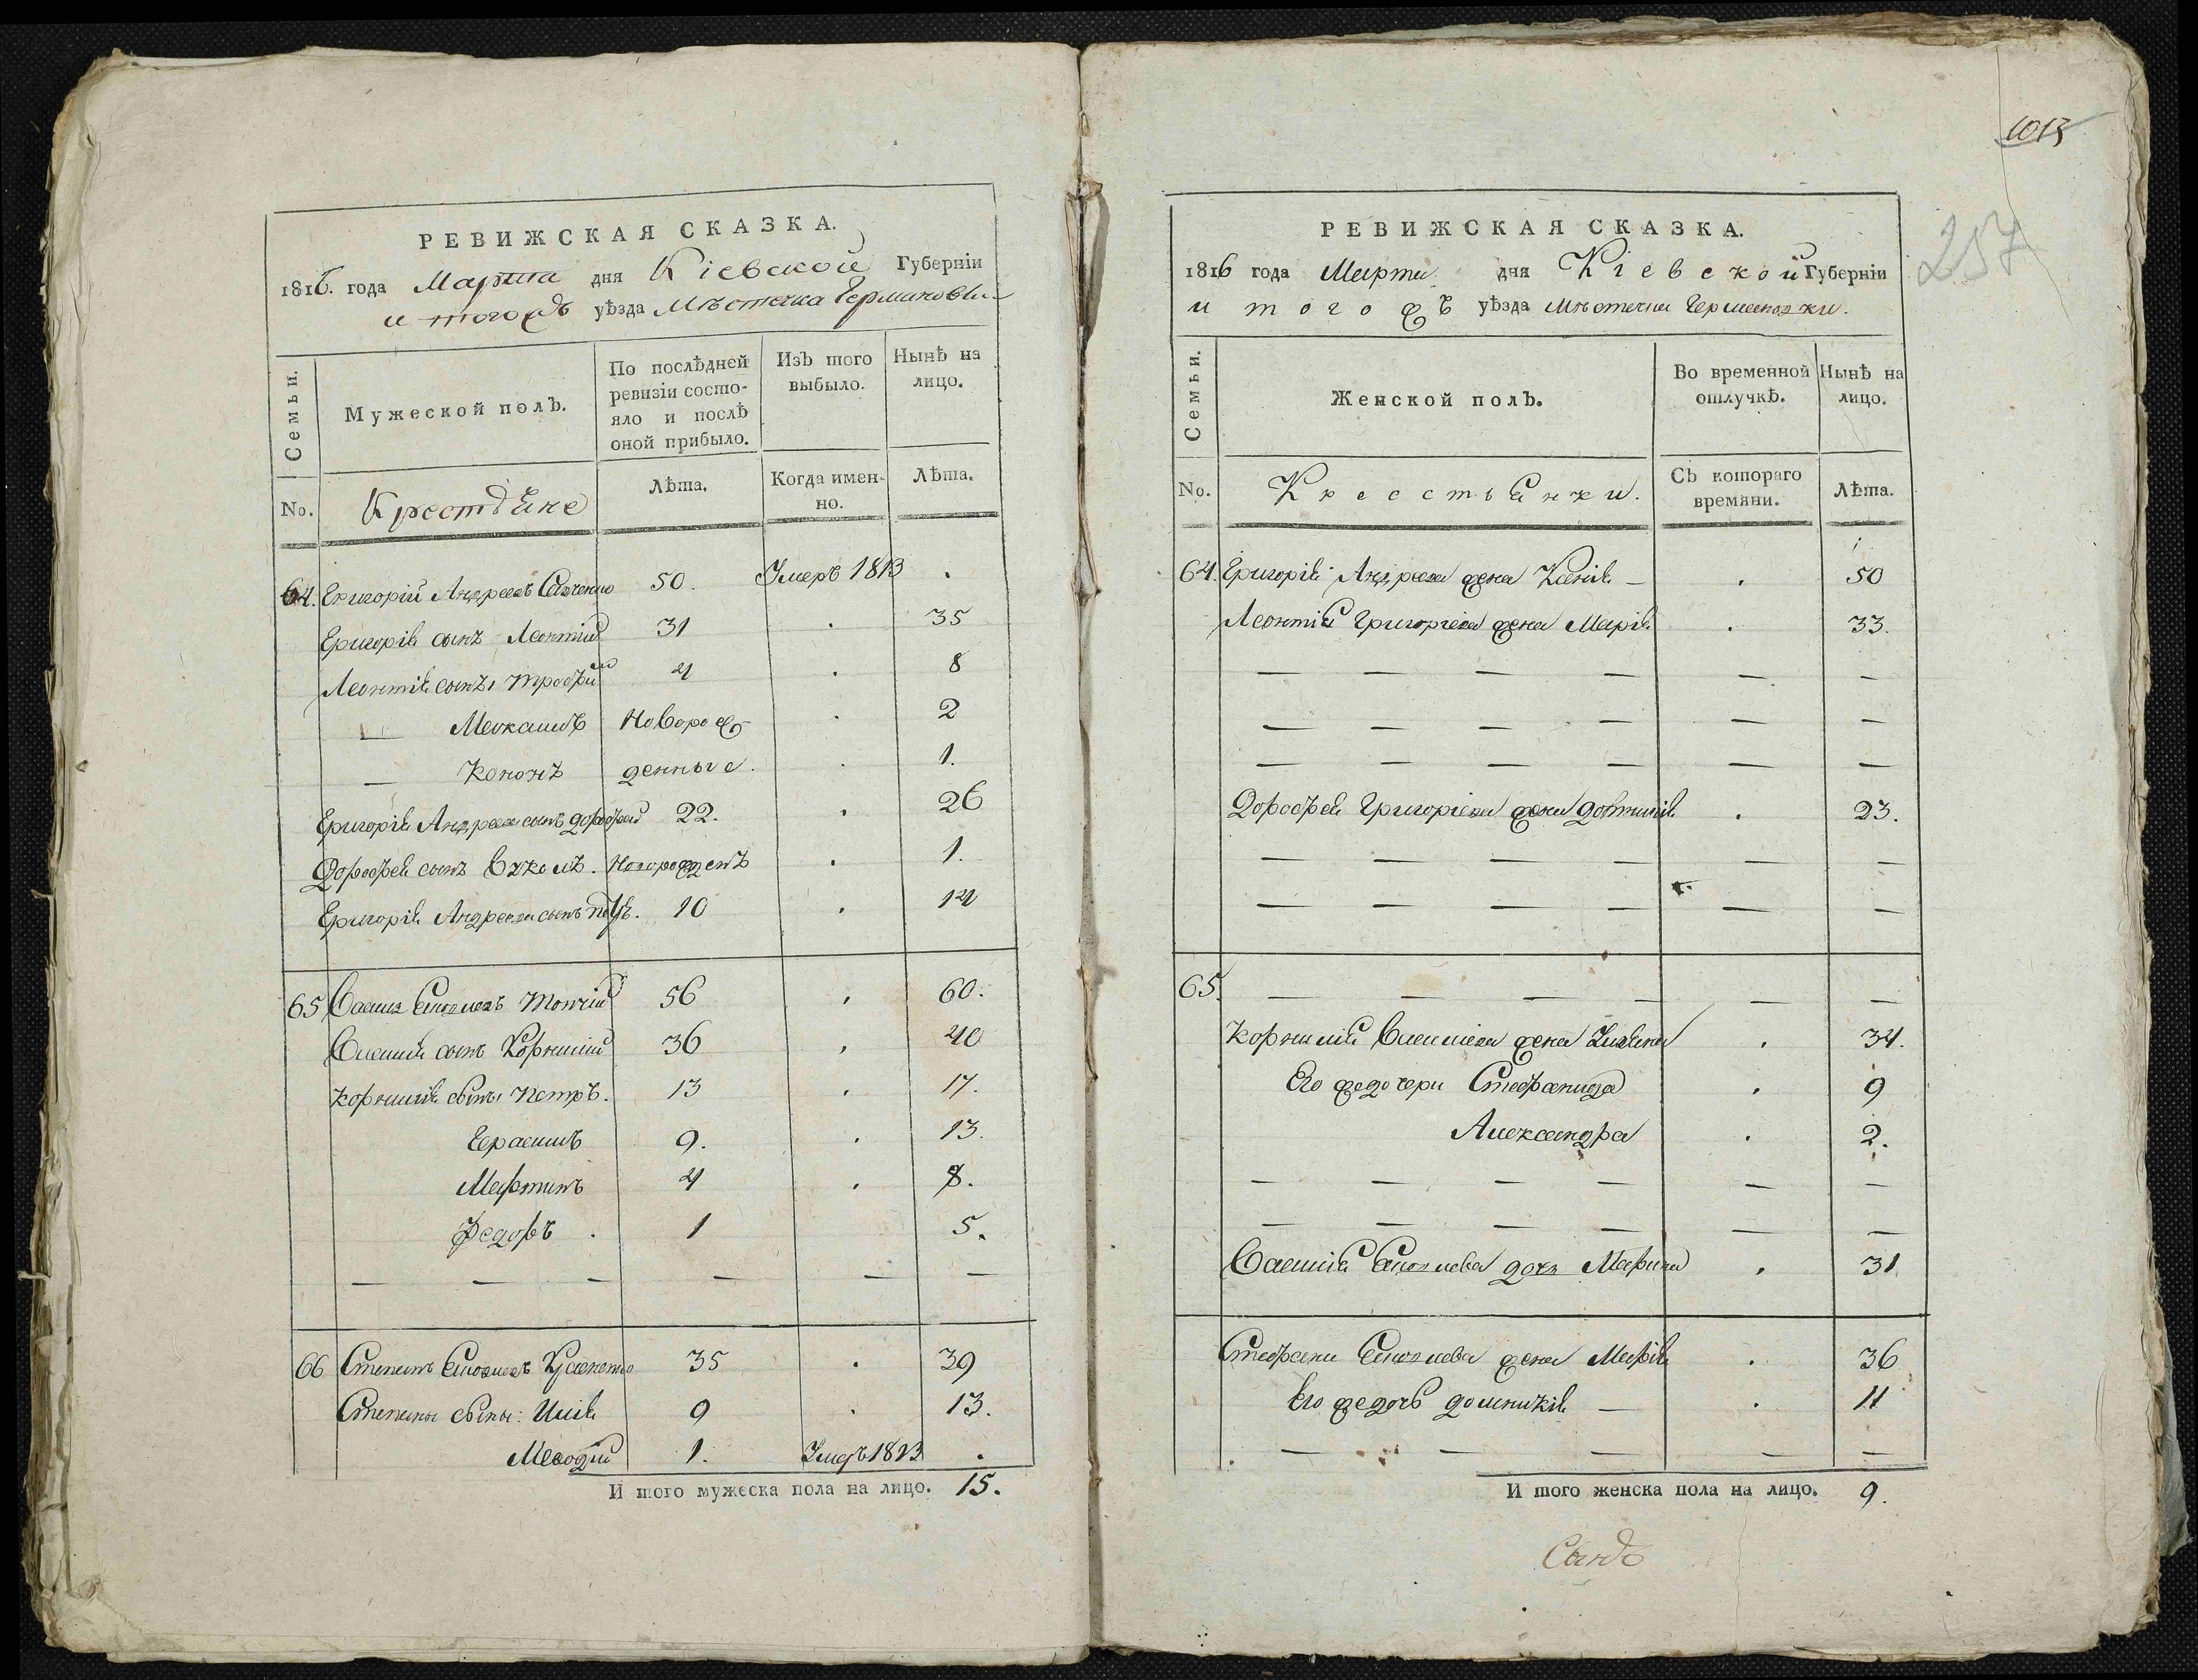 РЕВИЖСКАЯ СКАЗКА.
1816. года Марта дня Кіевской Губерніи
и тогожъ уѣзда Мѣстечка Германовки
Семьи.
Мужеской полъ.
По послѣдней ревизіи состо-
яло и послѣ
оной прибыло.
Изъ того
выбыло.
Нынѣ на
лицо.
No.
Крестьяне
Лѣта.
Когда имен-
но.
Лѣта.
64. Григорій Андреевъ 50. Умеръ 1813 .
Григорія сынъ Леонтій 31 . 35
Леонтія сынъ Трофим 4 . 8
— Меркашъ Новорож . 2
— Кононъ денные . 1.
Григорія Андреева сынъ Дорофей 22. . 26
Дорофея сынъ . Новорожденъ . 1.
Григорія Андреева сынъ 10 . 14
65 Василь 56 . 60.
Василія сынъ Корнилій 36 . 40
Корнилія сыны Петръ. 13 . 17.
Герасимъ 9. . 13.
Мартинъ 4 . 8.
Федоръ . 1 . 5.
— — — — — —
66 Степанъ 35 . 39
Степана сыны: Илія 9 . 13.
Мефодій 1. Умеръ 1813 .
И того мужеска пола на лицо. 15.
1013
257
РЕВИЖСКАЯ СКАЗКА.
1816 года Марта дня Кіевской Губерніи
и тогожъ уѣзда Мѣстечка Германовки.
Семьи.
Женской полъ.
Во временной
отлучкѣ.
Нынѣ на
лицо.
No.
Крестьянки.
Съ котораго
времяни.
Лѣта.
64. Григорія Андреева жена Ксенія — . 50
Леонтія Григоріева жена Марія . 33.
— — — — — —
— — — — — —
— — — — — —
Дорофея Григоріева жена . 23.
— — — — — —
— — — — — —
65. — — — — — —
Корнилія Василіева жена . 34.
Его жедочери Стефанида . 9
Александра . 2.
— — — — — —
— — — — — —
Василія дочь Марина . 31.
Стефана жена Марія . 36
Его жедочь Домникія — . 11
— — — — —
И того женска пола на лицо. 9.